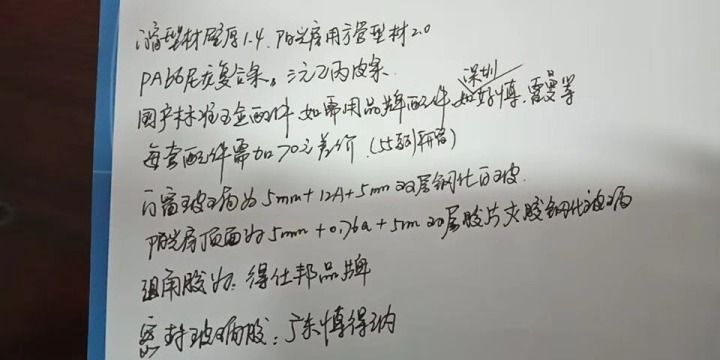 门窗型材壁厚1.4. 阳光房用方管型材2.0
PA66尼龙复合条。三元乙丙皮条.
国产标准五金配件 如需用品牌配件 如好博.雷曼等
深圳
每套配件需加70元差价.(55系列平开窗)
门窗玻璃为5mm+12A+5mm双层钢化白玻.
阳光房顶面为5mm+0.76a+5mm双层胶片夹胶钢化玻璃
组角胶为:得仕邦品牌
密封玻璃胶:广东博得纳